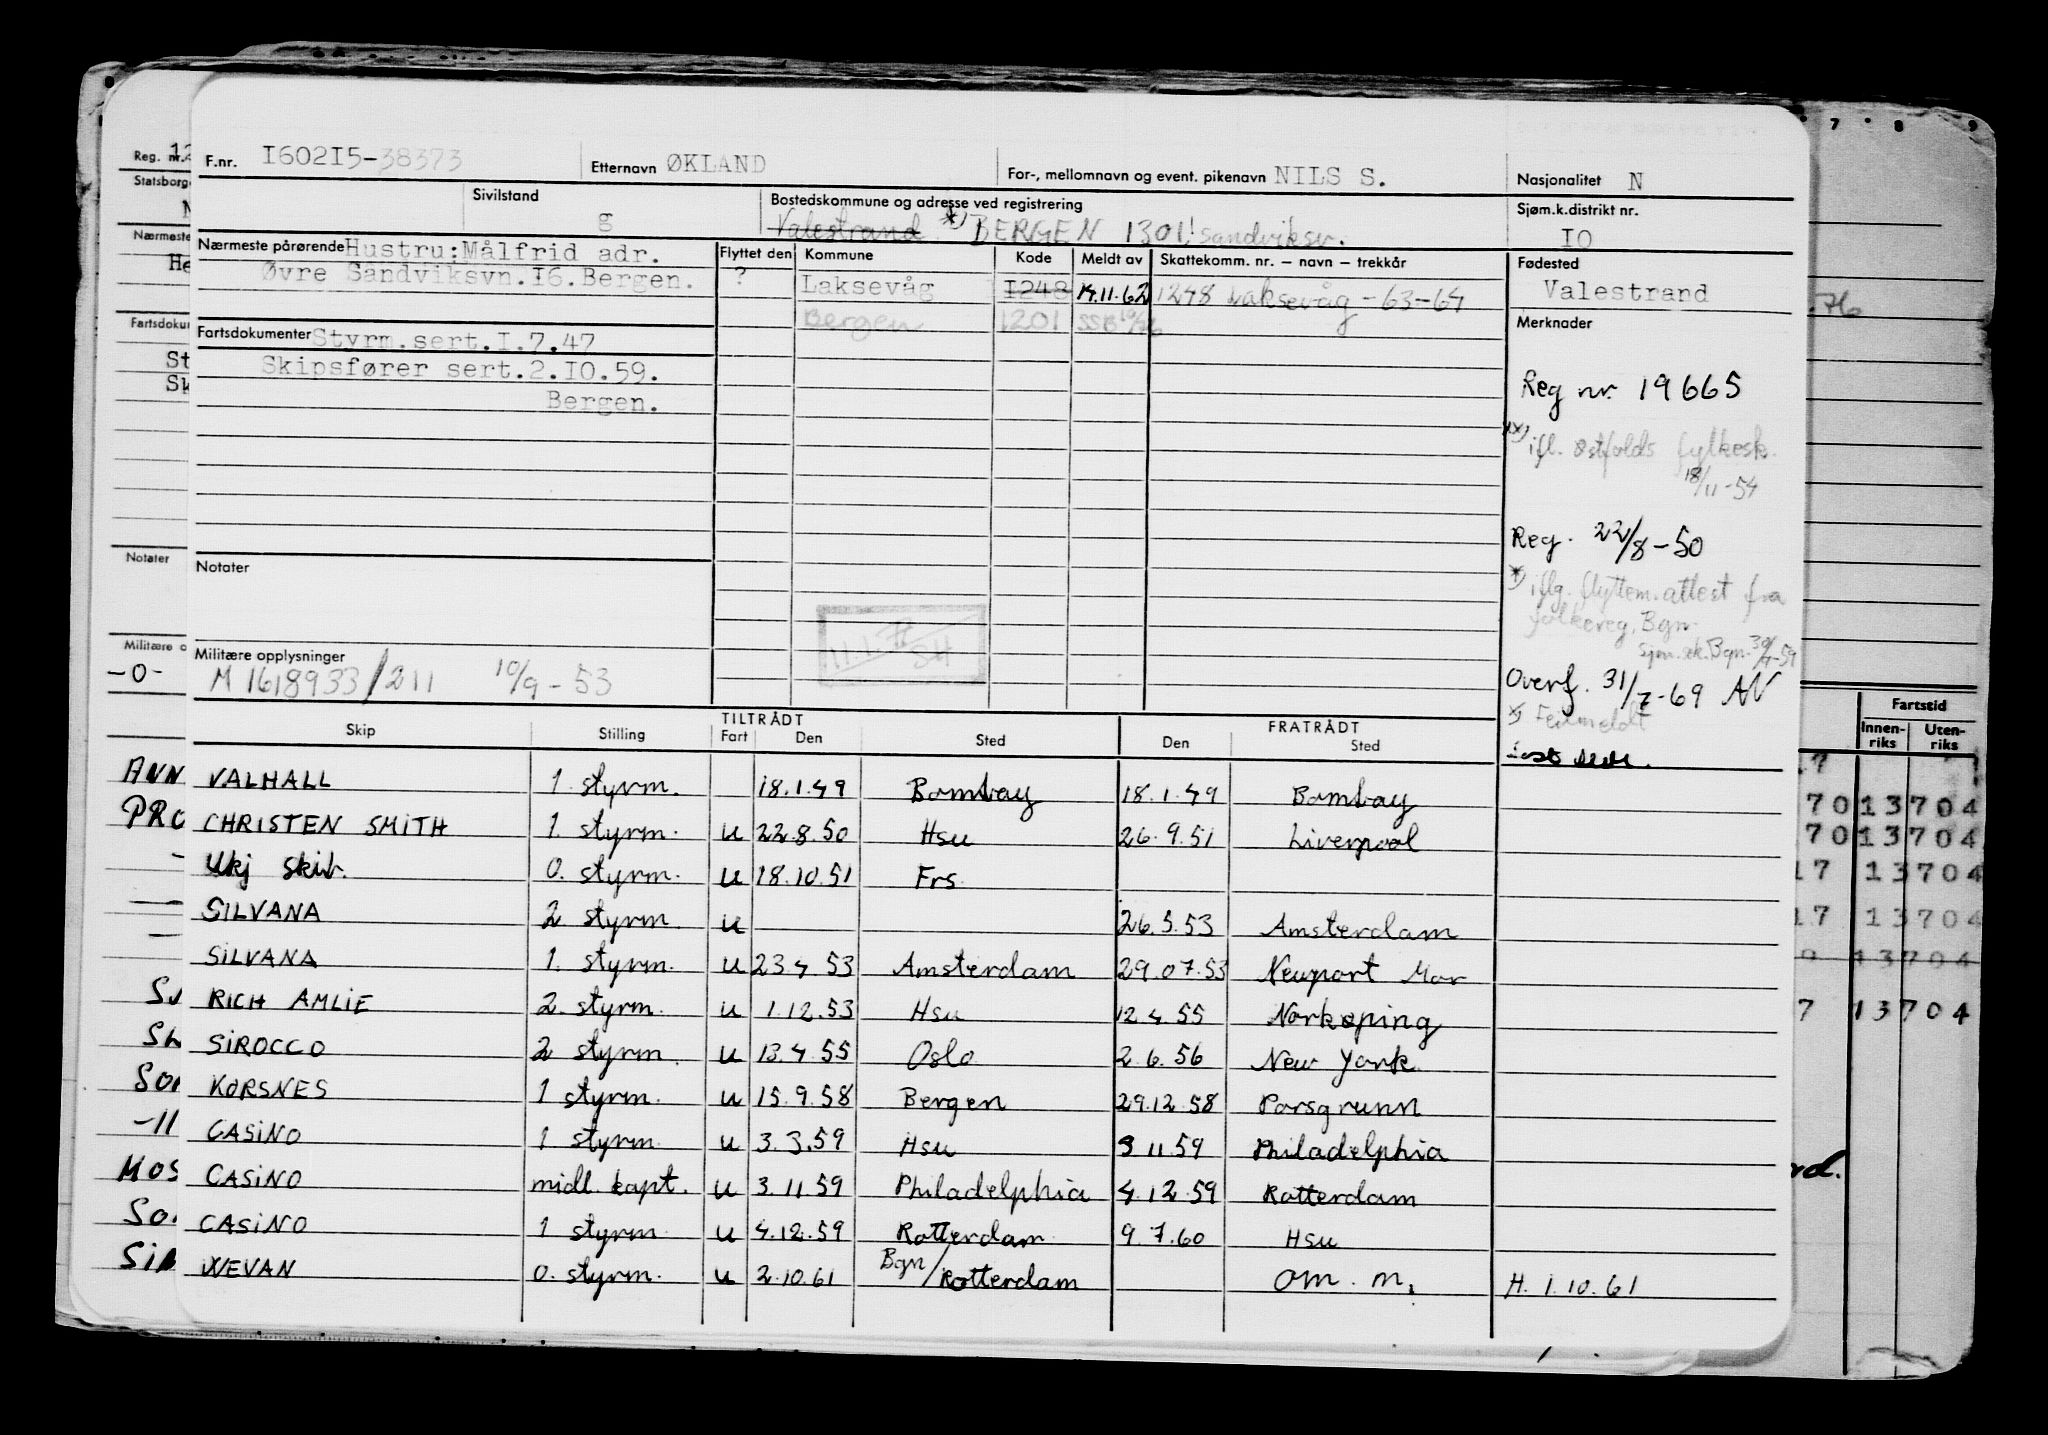 F.nr. I602I5-38373 Etternavn ØKLAND For-, mellomnavn og event. pikenavn NILS S. Nasjonalitet N
Sivilstand g Bostedskommune og adresse ved registrering Sjøm.k.distrikt nr. IO
Valestrand *) BERGEN 1301! Sandviksv.
Nærmeste pårørende Hustru: Målfrid adr.
Øvre Sandviksvn.I6.Bergen.
Flyttet den Kommune Kode Meldt av Skattekomm. nr. – navn – trekkår
? Laksevåg 1248 14.11.62 1248 Laksevåg -63-64
Bergen 1201 SSB
Fødested
Valestrand
Fartsdokumenter Styrm.sert.I.7.47
Skipsfører sert.2.IO.59.
Bergen.
Merknader
Reg nr. 19665
ifl. Østfolds fylkesk.
18/11-54
Reg. 22/8-50
*) iflg. flyttem.attest fra
folkereg, Bgn.
sjøm.sk.Bgn.
Overf. 31/7-69 AN
*) Feilmeldt
Notater
Militære opplysninger
M 1618933/211 10/9-53
TILTRÅDT FRATRÅDT
Skip Stilling Fart Den Sted Den Sted
VALHALL 1. styrm. 18.1.49 Bombay 18.1.49 Bombay
CHRISTEN SMITH 1. styrm. u 22.8.50 Hsu 26.9.51 Liverpool
Ukj skip. 0. styrm. u 18.10.51 Frs.
SILVANA 2 styrm. u 26.5.53 Amsterdam
SILVANA 1. styrm. u 23 4. 53 Amsterdam 29.07.53 Newport Mon
RICH AMLIE 2. styrm. u 1.12.53 Hsu 12.4.55 Norkøping
SIROCCO 2 styrm. u 13.4.55 Oslo 2.6.56 New York
KORSNES 1 styrm. u 15.9.58 Bergen 29.12.58 Porsgrunn
CASINO 1 styrm. u 3.3.59 Hsu 3 11.59 Philadelphia
CASINO midl. kapt. u 3.11 59 Philadelphia 4.12.59 Rotterdam
CASINO 1 styrm. u 4.12.59 Rotterdam 9.7.60 Hsu
WEVAN 0. styrm. u 2.10.61 Bgn/Rotterdam om. m. H. 1.10.61
Reg. nr. 12
Statsborge
Nærmeste
He
Fartsdoku
St
Sk
Notater
Militære o
-0-
ANN
PRO
SIL
-11
MOS
7 8 9
76
Fartstid
Innen-riks Uten-riks
17
70 13704
70 13704
17 13704
17 13704
13704
7 13704